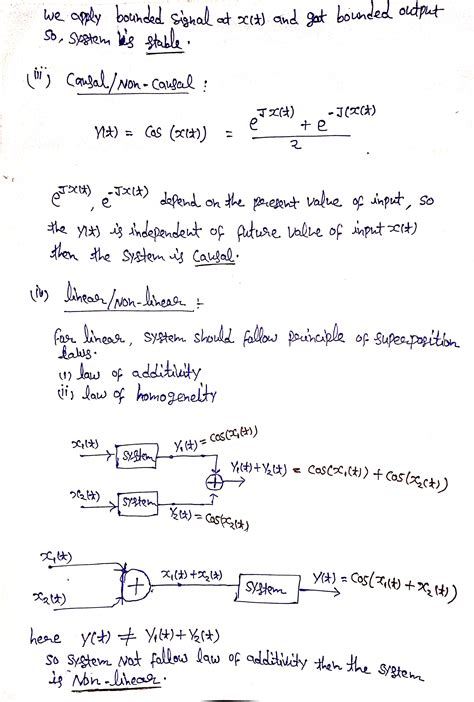 we apply bounded signal at x(t) and got bounded output
so, system is stable.
(iii) Causal/Non-Causal :
Y(t) = Cos (x(t)) = e^Jx(t) + e^-J(x(t) / 2
e^Jx(t), e^-Jx(t) depend on the present value of input, so
the y(t) is independent of future value of input x(t)
then the system is Causal.
(iv) linear/Non-linear :-
for linear, system should follow principle of superposition
laws.
(i) law of additivity
(ii) law of homogeneity
x₁(t) System Y₁(t) = cos(x₁(t))
Y₁(t)+Y₂(t) = cos(x₁(t)) + cos(x₂(t))
x₂(t) System Y₂(t) = cos(x₂(t)
x₁(t)
+ x₁(t)+x₂(t) System y(t) = cos(x₁(t) + x₂(t))
x₂(t)
here y(t) ≠ Y₁(t)+Y₂(t)
so system not follow law of additivity then the system
is Non-linear.